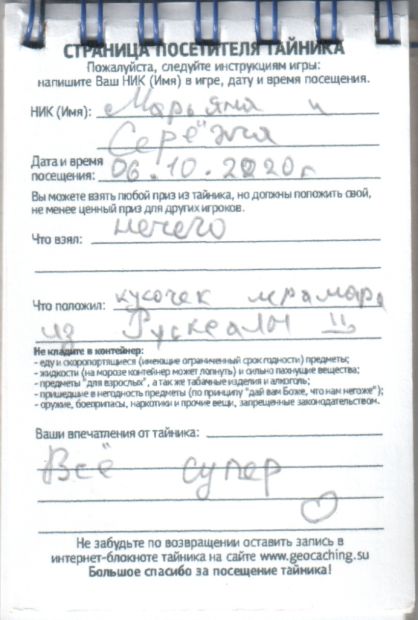 СТРАНИЦА ПОСЕТИТЕЛЯ ТАЙНИКА
Пожалуйста, следуйте инструкциям игры:
напишите Ваш НИК (Имя) в игре, дату и время посещения.
НИК (Имя): Марьяна и
Серёжа
Дата и время
посещения: 06.10.2020г
Вы можете взять любой приз из тайника, но должны положить свой,
не менее ценный приз для других игроков.
нечего
Что взял:
Что положил: кусочек мрамора
из Рускеалы
Не кладите в контейнер:
- еду и скоропортящиеся (имеющие ограниченный срок годности) предметы;
- жидкости (на морозе контейнер может лопнуть) и сильно пахнущие вещества;
- предметы "для взрослых", а так же табачные изделия и алкоголь;
- пришедшие в негодность предметы (по принципу "дай вам Боже, что нам негоже");
- оружие, боеприпасы, наркотики и прочие вещи, запрещенные законодательством.
Ваши впечатления от тайника:
Всё супер
Не забудьте по возвращении оставить запись в
интернет-блокноте тайника на сайте www.geocaching.su
Большое спасибо за посещение тайника!